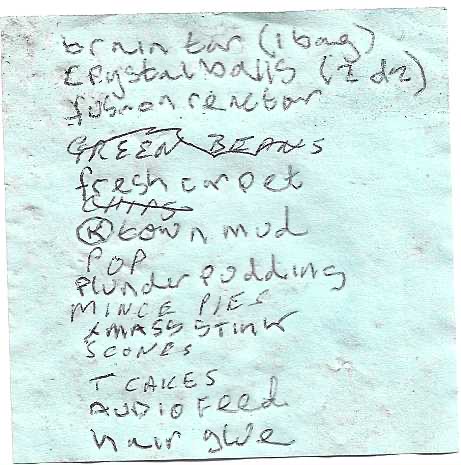 brain tar (1 bag)
crystal balls (2 dz)
fusion reactor
GREEN BEANS
fresh carpet
CHIPS
Ⓚ town mud
POP
plunder pudding
MINCE PIES
XMASS STINK
SCONES
T CAKES
AUDIO feed
hair glue